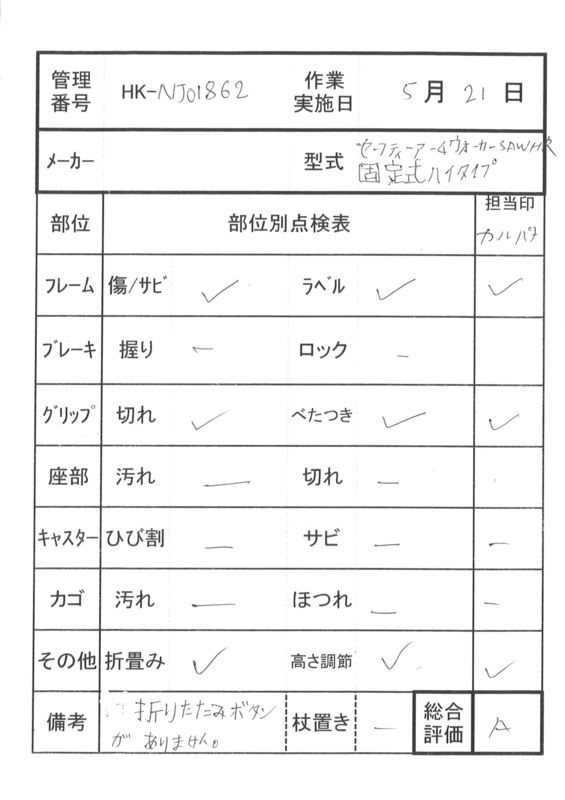 管理番号 HK-NJ01862 作業実施日 5月21日
メーカー 型式 セーフティーアームウォーカーSAWHR
固定式ハイタイプ
部位 部位別点検表 担当印 カルパナ
フレーム 傷/サビ ✓ ラベル ✓ ✓
ブレーキ 握り ー ロック ー
グリップ 切れ ✓ べたつき ✓ ✓
座部 汚れ ー 切れ ー
キャスター ひび割 ー サビ ー ー
カゴ 汚れ ー ほつれ ー ー
その他 折畳み ✓ 高さ調節 ✓ ✓
備考 折りたたみボタン
がありません。
杖置き ー 総合評価 A